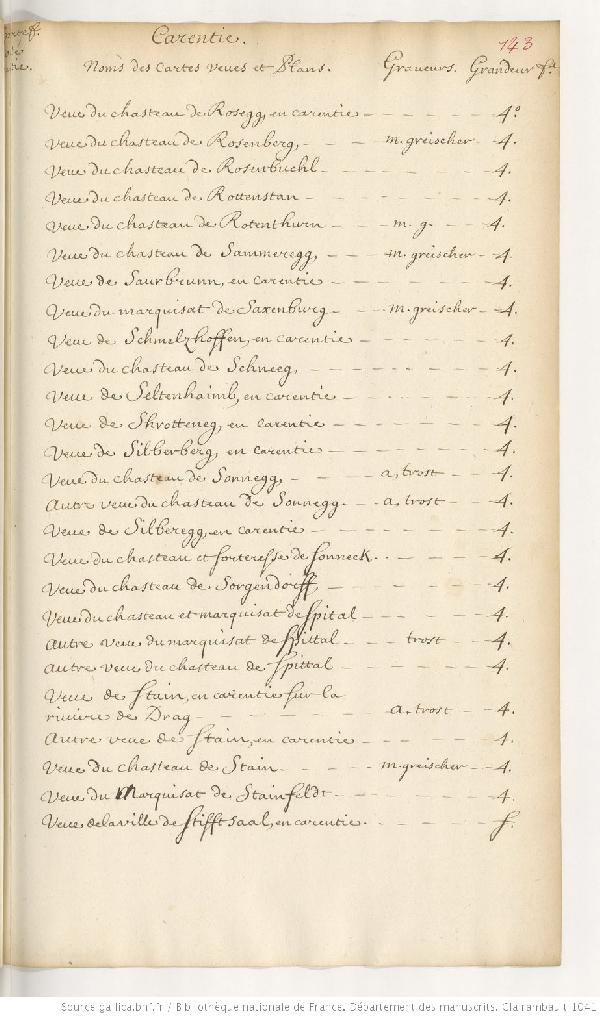 Carentie.
143
Noms des Cartes veues et Plans. Graveurs. Grandeur
Veue du chasteau de Rosegg, en carentie - - - - - - 4.º
Veue du chasteau de Rosenberg, - - - m. greischer - 4.
Veue du chasteau de Rosenbuchl - - - - - - 4.
Veue du chasteau de Rottenstan - - - - - - 4.
Veue du chasteau de Rotenthurn - - - m. g. - - 4.
Veue du chasteau de Sammeregg, - - m. greischer - 4.
Veue de Saurbrunn, en carentie - - - - - - 4.
Veue du marquisat de Saxenburg - - m. greischer - 4.
Veue de Schmelzhoffen, en carentie - - - - - 4.
Veue du chasteau de Schneeg, - - - - - - 4.
Veue de Seltenhaimb, en carentie - - - - - 4.
Veue de Shrotteneg, en carentie - - - - - - 4.
Veue de Silberberg, en carentie - - - - - - 4.
Veue du chasteau de Sonnegg, - - a. trost - - 4.
Autre veue du chasteau de Sonnegg - - a. trost - - 4.
Veue de Silberegg, en carentie - - - - - - 4.
Veue du chasteau et forteresse de Sonneck. - - - - 4.
Veue du chasteau de Sorgendorff, - - - - - - 4.
Veue du chasteau et marquisat de Spital - - - - - 4.
Autre veue du marquisat de Spittal - - trost - - 4.
Autre veue du chasteau de Spittal - - - - - - 4.
Veue de Stain, en carentie sur la
riviere de Drag - - - - - a. trost - - 4.
Autre veue de Stain, en carentie - - - - - 4.
Veue du chasteau de Stain - - - m. greischer - 4.
Veue du Marquisat de Stainfeldt - - - - - - 4.
Veue de la ville de Stifft Saal, en carentie. - - - - - f.
Source gallica.bnf.fr / Bibliothèque nationale de France. Département des manuscrits. Clairambault 1041